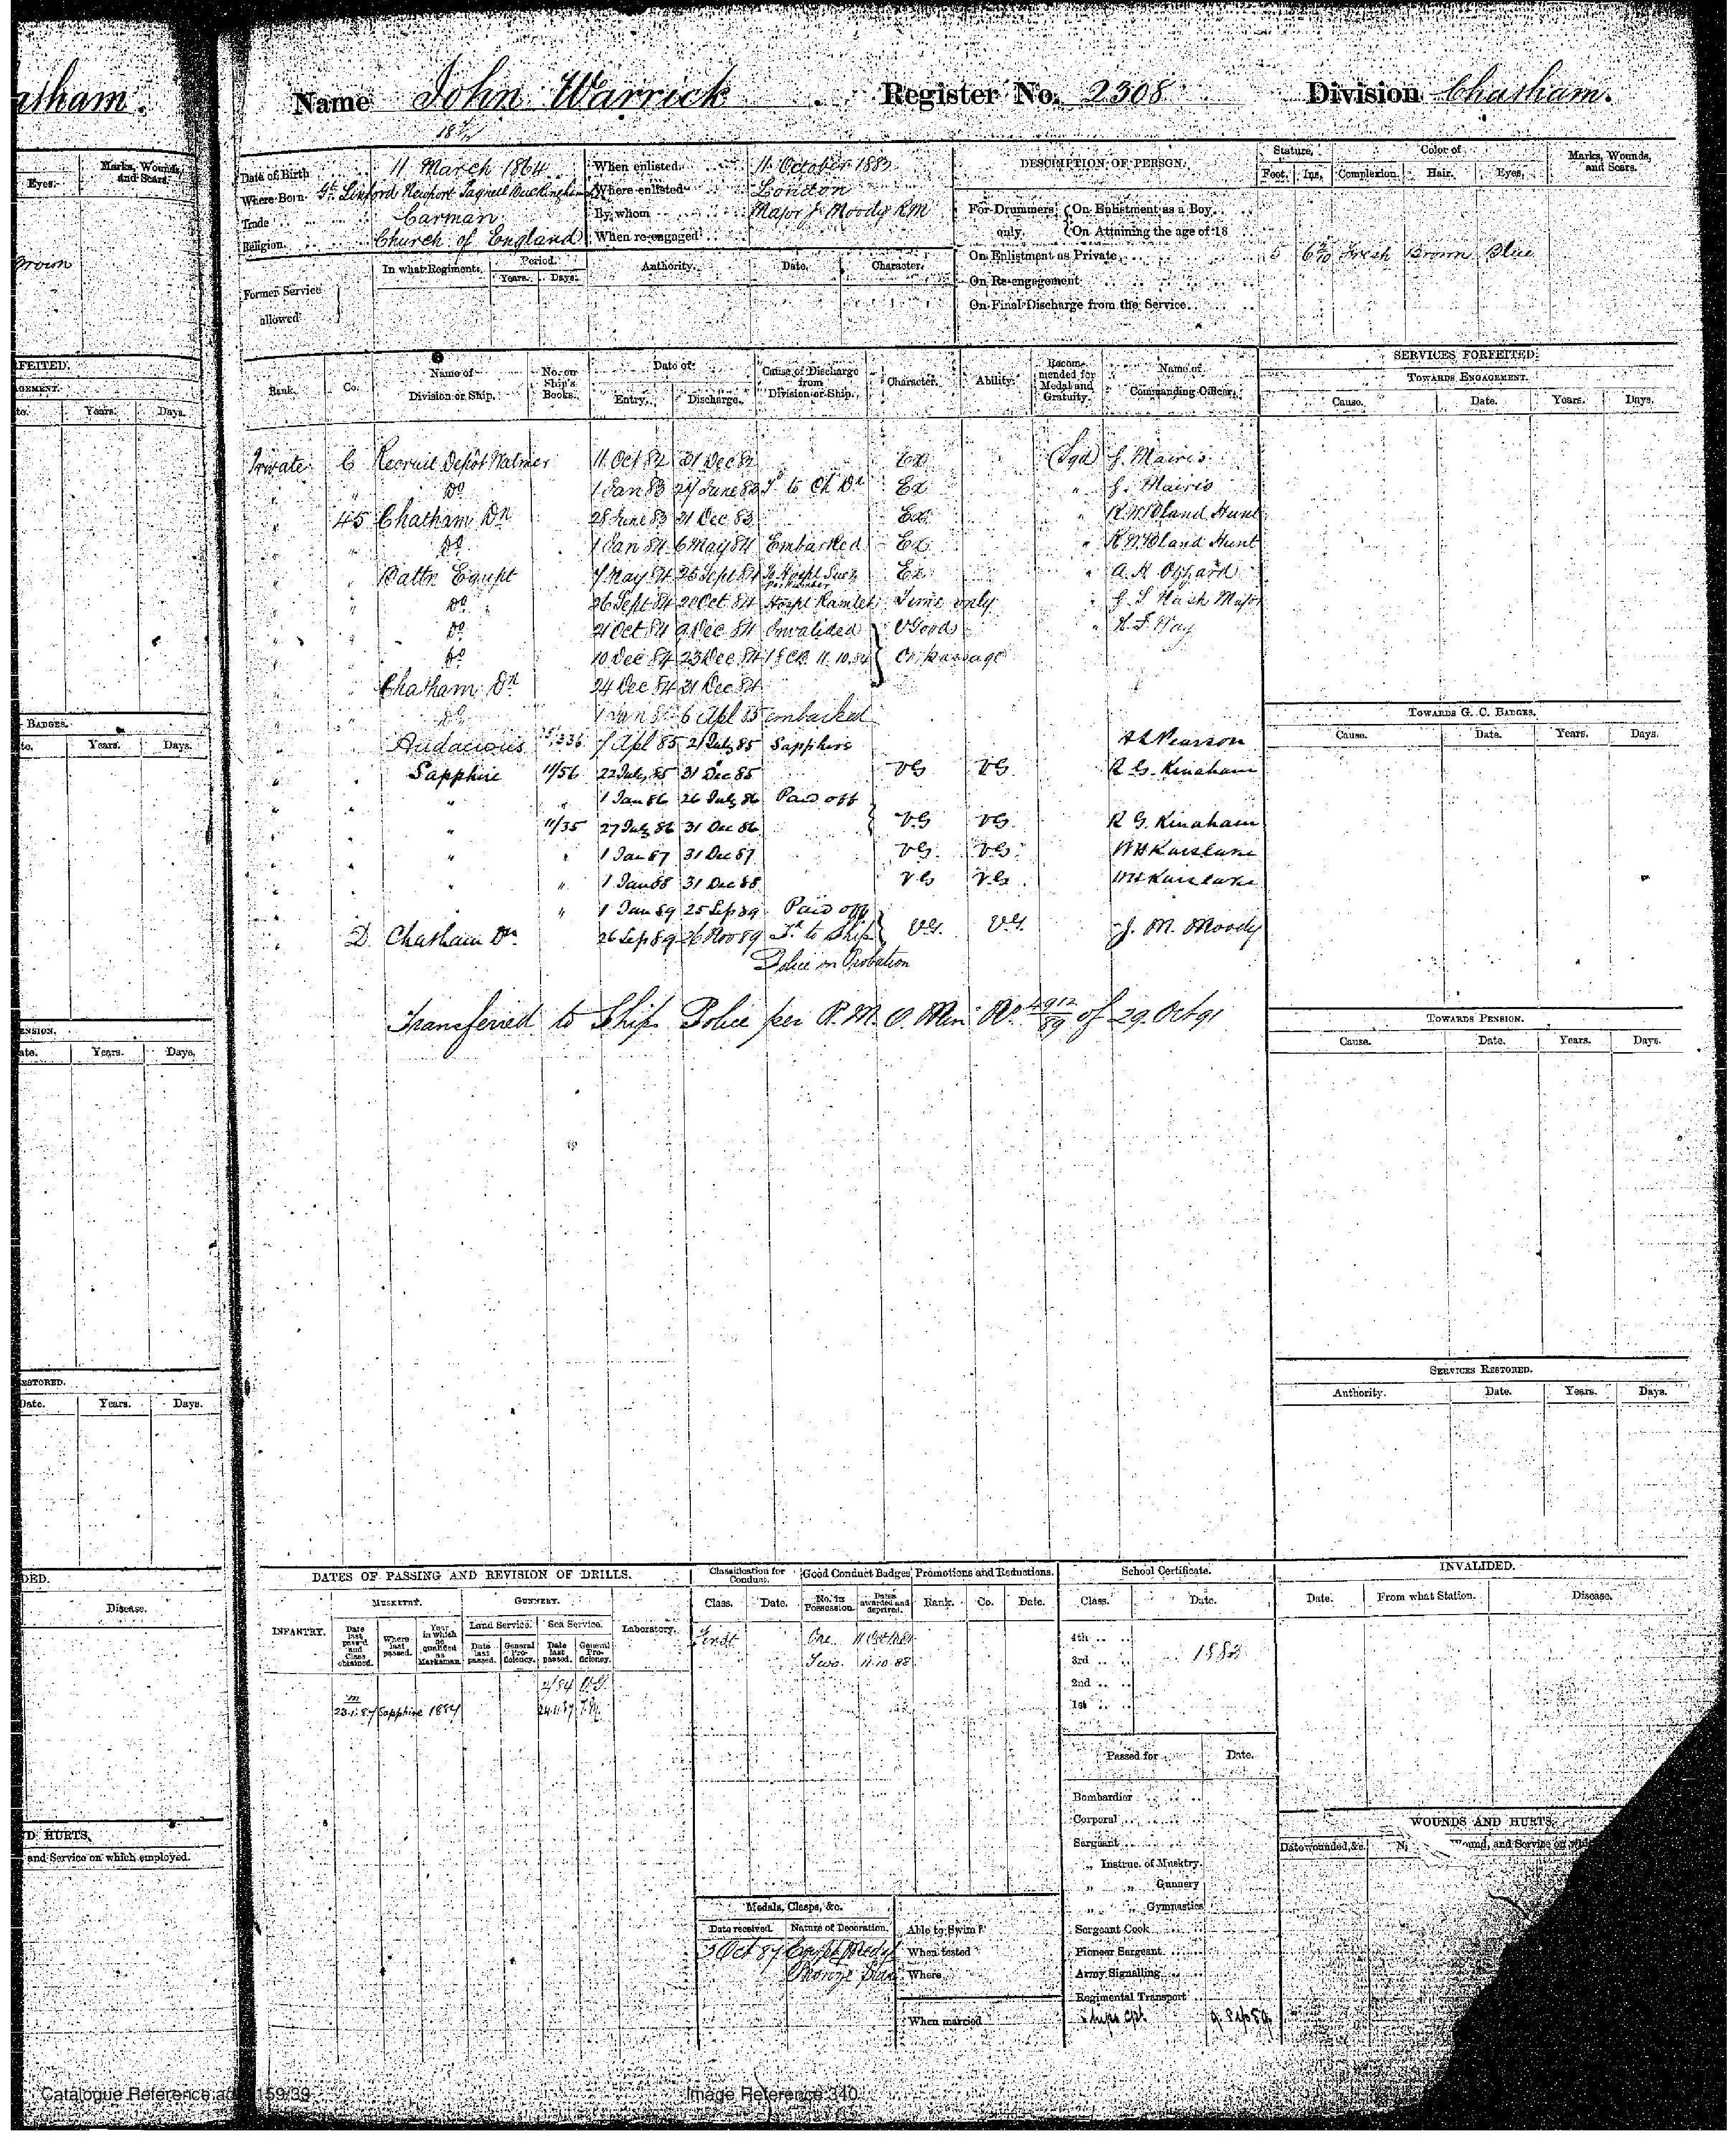 atham.
Name John Warrick Register No. 2308 Division Chatham.
Marks, Wounds, and Scars.
Eyes.
Brown
Date of Birth 11 March 1864
Where Born Gt. Linford Newport Pagnell Buckingham
Trade Carman
Religion Church of England
When enlisted 11 October 1883
Where enlisted London
By whom Major J. Moody RM
When re-engaged
DESCRIPTION OF PERSON.
Stature. Foot. Ins.
Color of Complexion. Hair. Eyes.
Marks, Wounds, and Scars.
For Drummers only. On Enlistment as a Boy
On Attaining the age of 18
On Enlistment as Private 5 6 Fresh Brown Blue
On Re-engagement
On Final Discharge from the Service
Former Service allowed
In what Regiments. Period. Years. Days. Authority. Date. Character.
Rank. Co. Name of Division or Ship. No. on Ship's Books. Date of Entry. Discharge. Cause of Discharge from Division or Ship. Character. Ability. Recommended for Medal and Gratuity. Name of Commanding Officer.
Private C Recruit Depôt Walmer 11 Oct 82 31 Dec 82 Ex (Sgd) G. Mairis
" " Do 1 Jan 83 27 June 83 to Ch Dn Ex " G. Mairis
" 45 Chatham Dn 28 June 83 31 Dec 83 Ex " R W Bland Hunt
" " Do 1 Jan 84 6 May 84 Embarked Ex " R W Bland Hunt
" " Battn Egypt 7 May 84 25 Sept 84 To Hospl Suez Ex " A. H. Ozzard
" " Do 26 Sept 84 20 Oct 84 Hospl Ramleh Time only " Major
" " Do 21 Oct 84 9 Dec 84 Invalided V Good " N. F. Way
" " Do 10 Dec 84 23 Dec 84 11.10.84 On passage
" " Chatham Dn 24 Dec 84 31 Dec 84
" " Do 1 Jan 85 6 Apl 85 embarked
" Audacious 7 Apl 85 21 July 85 Sapphire Pearson
" Sapphire 11/56 22 July 85 31 Dec 85 VG VG R G. Kinahan
" " " 1 Jan 86 26 July 86 Paid off
" " 11/35 27 July 86 31 Dec 86 VG VG R G. Kinahan
" " " 1 Jan 87 31 Dec 87 VG. VG. WH Karslake
" " " 1 Jan 88 31 Dec 88 VG VG. WH Karslake
" " 1 Jan 89 25 Sep 89 Paid off
D Chatham Dn 26 Sep 89 26 Nov 89 Tr. to Ship VG. VG. J. M. Moody
Police on Probation
Transferred to Ship Police per R. M. O. Min No. 4912/89 of 29. Oct 91
SERVICES FORFEITED.
TOWARDS ENGAGEMENT.
Cause. Date. Years. Days.
TOWARDS G. C. BADGES.
Cause. Date. Years. Days.
TOWARDS PENSION.
Cause. Date. Years. Days.
SERVICES RESTORED.
Authority. Date. Years. Days.
FEITED.
Years. Days.
BADGES.
Years. Days.
Years. Days.
Date. Years. Days.
Disease.
D HURTS.
and Service on which employed.
DATES OF PASSING AND REVISION OF DRILLS.
INFANTRY. MUSKETRY. GUNNERY. Laboratory.
Date last passed and Class obtained. Where last passed. Year in which he qualified as Marksman.
Land Service. Date last passed. General Proficiency.
Sea Service. Date last passed. General Proficiency.
2/84 V.G.
23.1.87 Sapphire 1887 24.1.87
Classification for Conduct. Class. Date.
First
Good Conduct Badges. No. in Possession. Dates awarded and deprived.
One 11 Oct 1884
Two. 11.10.88
Promotions and Reductions. Rank. Co. Date.
School Certificate.
Class. Date.
4th
3rd 1883
2nd
1st
Passed for Date.
Bombardier
Corporal
Sergeant
" Instruc. of Musktry.
" " Gunnery
" " Gymnastics
Sergeant Cook
Pioneer Sergeant
Army Signalling
Regimental Transport
Ships Cpl. 9 Sep 89
Medals, Clasps, &c.
Date received. Nature of Decoration.
Oct 87 Egypt Medal
Bronze Star
Able to Swim?
When tested
Where
When married
INVALIDED.
Date. From what Station. Disease.
WOUNDS AND HURTS.
Date wounded, &c. Wound, and Service on
Catalogue Reference: 159/39
Image Reference: 340